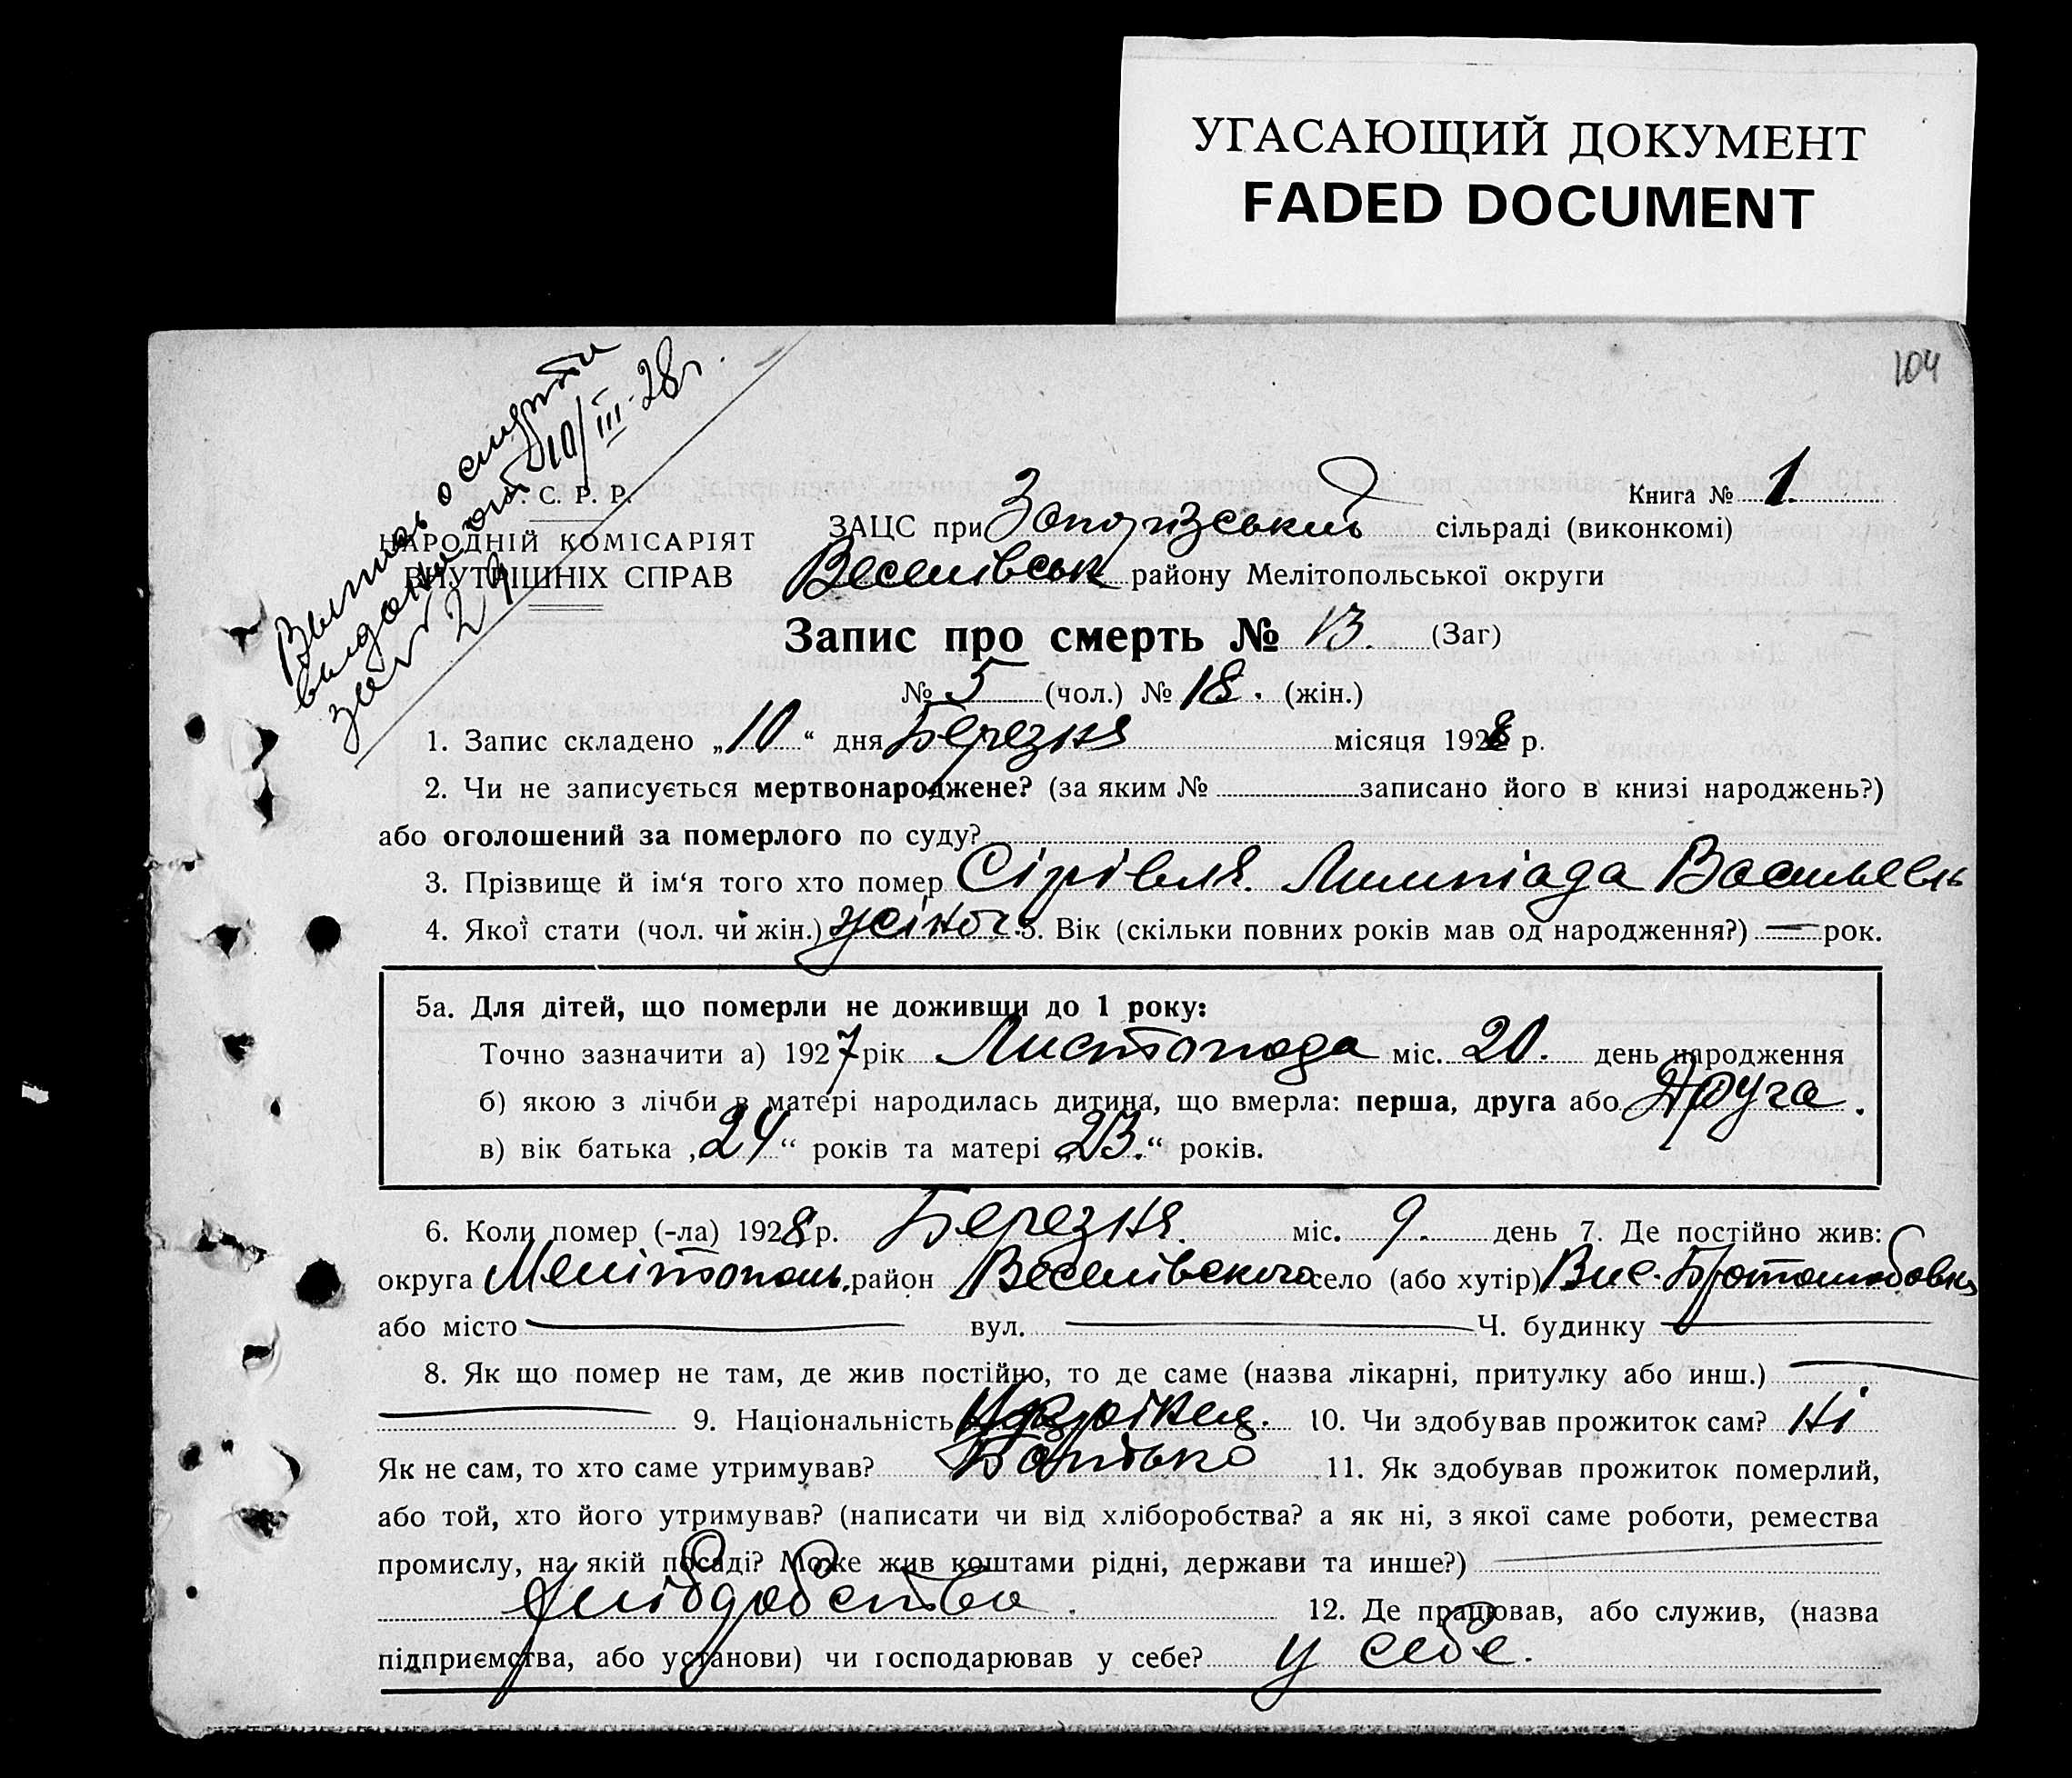 УГАСАЮЩИЙ ДОКУМЕНТ
FADED DOCUMENT
104
Выпись о смерти
выдана 10/III-28г.
за № 29
У. С. Р. Р.
НАРОДНІЙ КОМІСАРІЯТ
ВНУТРІШНІХ СПРАВ
Книга № 1.
ЗАЦС при Запорізський сільраді (виконкомі)
Веселівськ району Мелітопольської округи
Запис про смерть № 13. (Заг)
№ 5 (чол.) № 18. (жін.)
1. Запис складено „10“ дня Березня місяця 1928 р.
2. Чи не записується мертвонароджене? (за яким № записано його в книзі народжень?)
або оголошений за померлого по суду?
3. Прізвище й ім‘я того хто помер Лимпіада Васильевн
4. Якої стати (чол. чи жін.) жіноч. 5. Вік (скільки повних років мав од народження?) — рок.
5а. Для дітей, що померли не доживши до 1 року:
Точно зазначити а) 1927 рік Листопада міс. 20. день народження
б) якою з лічби в матері народилась дитина, що вмерла: перша, друга або Друга.
в) вік батька „24“ років та матері „23.“ років.
6. Коли помер (-ла) 1928 р. Березня. міс. 9. день 7. Де постійно жив:
округа Мелітополь. район Веселівского село (або хутір) Вис.
або місто — вул. — Ч. будинку —
8. Як що помер не там, де жив постійно, то де саме (назва лікарні, притулку або инш.) —
— 9. Національність 10. Чи здобував прожиток сам? Ні
Як не сам, то хто саме утримував? Батько 11. Як здобував прожиток померлий,
або той, хто його утримував? (написати чи від хліборобства? а як ні, з якої саме роботи, ремества
промислу, на якій посаді? Може жив коштами рідні, держави та инше?) —
12. Де працював, або служив, (назва
підприємства, або установи) чи господарював у себе? у себе.